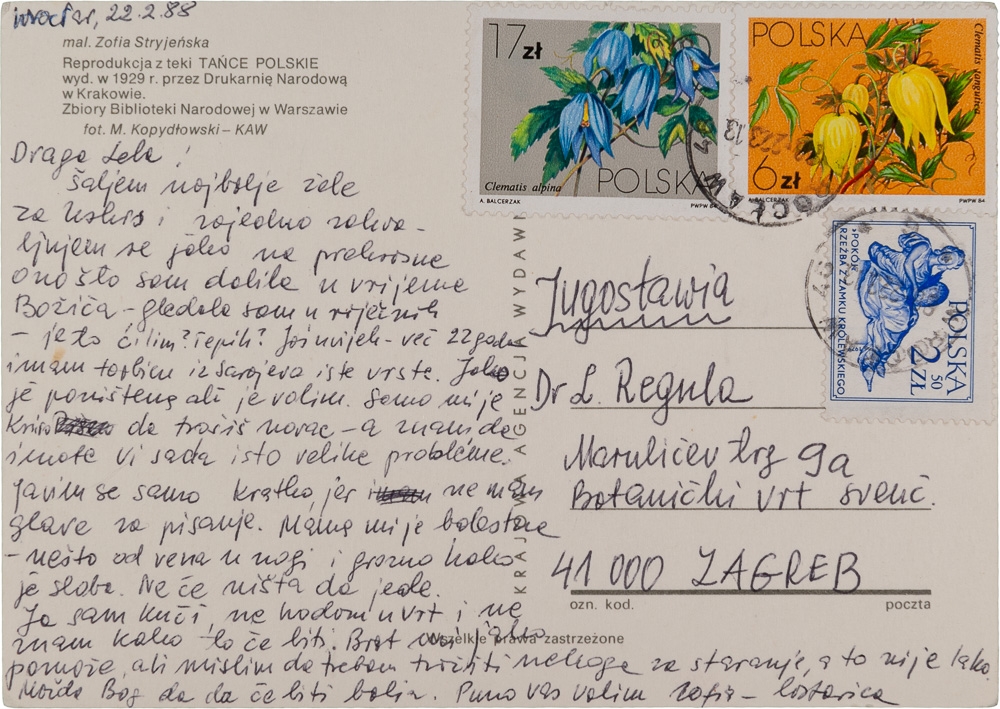 Wrocław, 22.2.88
mal. Zofia Stryjeńska
Reprodukcja z teki TAŃCE POLSKIE
wyd. w 1929 r. przez Drukarnię Narodową
w Krakowie.
Zbiory Biblioteki Narodowej w Warszawie
fot. M. Kopydłowski – KAW
Draga Lela!
Šaljem najbolje žele
za Uskrs i zajedno zahva-
ljujem se jako na prekrasne
ono što sam dobila u vrijeme
Božića – gledala sam u rječnik
– je to ćilim? tepih? Još uvijek – već 22 godine
imam torbicu iz Sarajeva iste vrste. Jako
je poništena ali je volim. Samo mi je
da trošiš novac – a znam da
imate vi sada isto velike probleme.
Javim se samo kratko jer nemam
glave za pisanje. Mama mi je bolestna
– nešto od vena u nogi i grozno kako
je slaba. Ne će ništa da jede.
Ja sam kući, ne hodam u vrt i ne
znam kako to će biti. Brat jako
pomože, ali mislim da trebam tražiti nekoga za staranje, a to nije lako.
Možda Bog da da će biti bolja. Puno vas volim Zofia –
17 zł
Clematis alpina
POLSKA
A. BALCERZAK
PWPW 84
POLSKA
Clematis tangutica
6 zł
A. BALCERZAK
PWPW 84
POLSKA
2 50 ZŁ
"POKÓJ"
RZEŹBA Z ZAMKU KRÓLEWSKIEGO
KRAJOWA AGENCJA WYDAWN
Jugosławia
Dr L. Regula
Marulićev trg 9a
Botanički vrt sveuč.
41 000 ZAGREB
ozn. kod.
poczta
Wszelkie prawa zastrzeżone